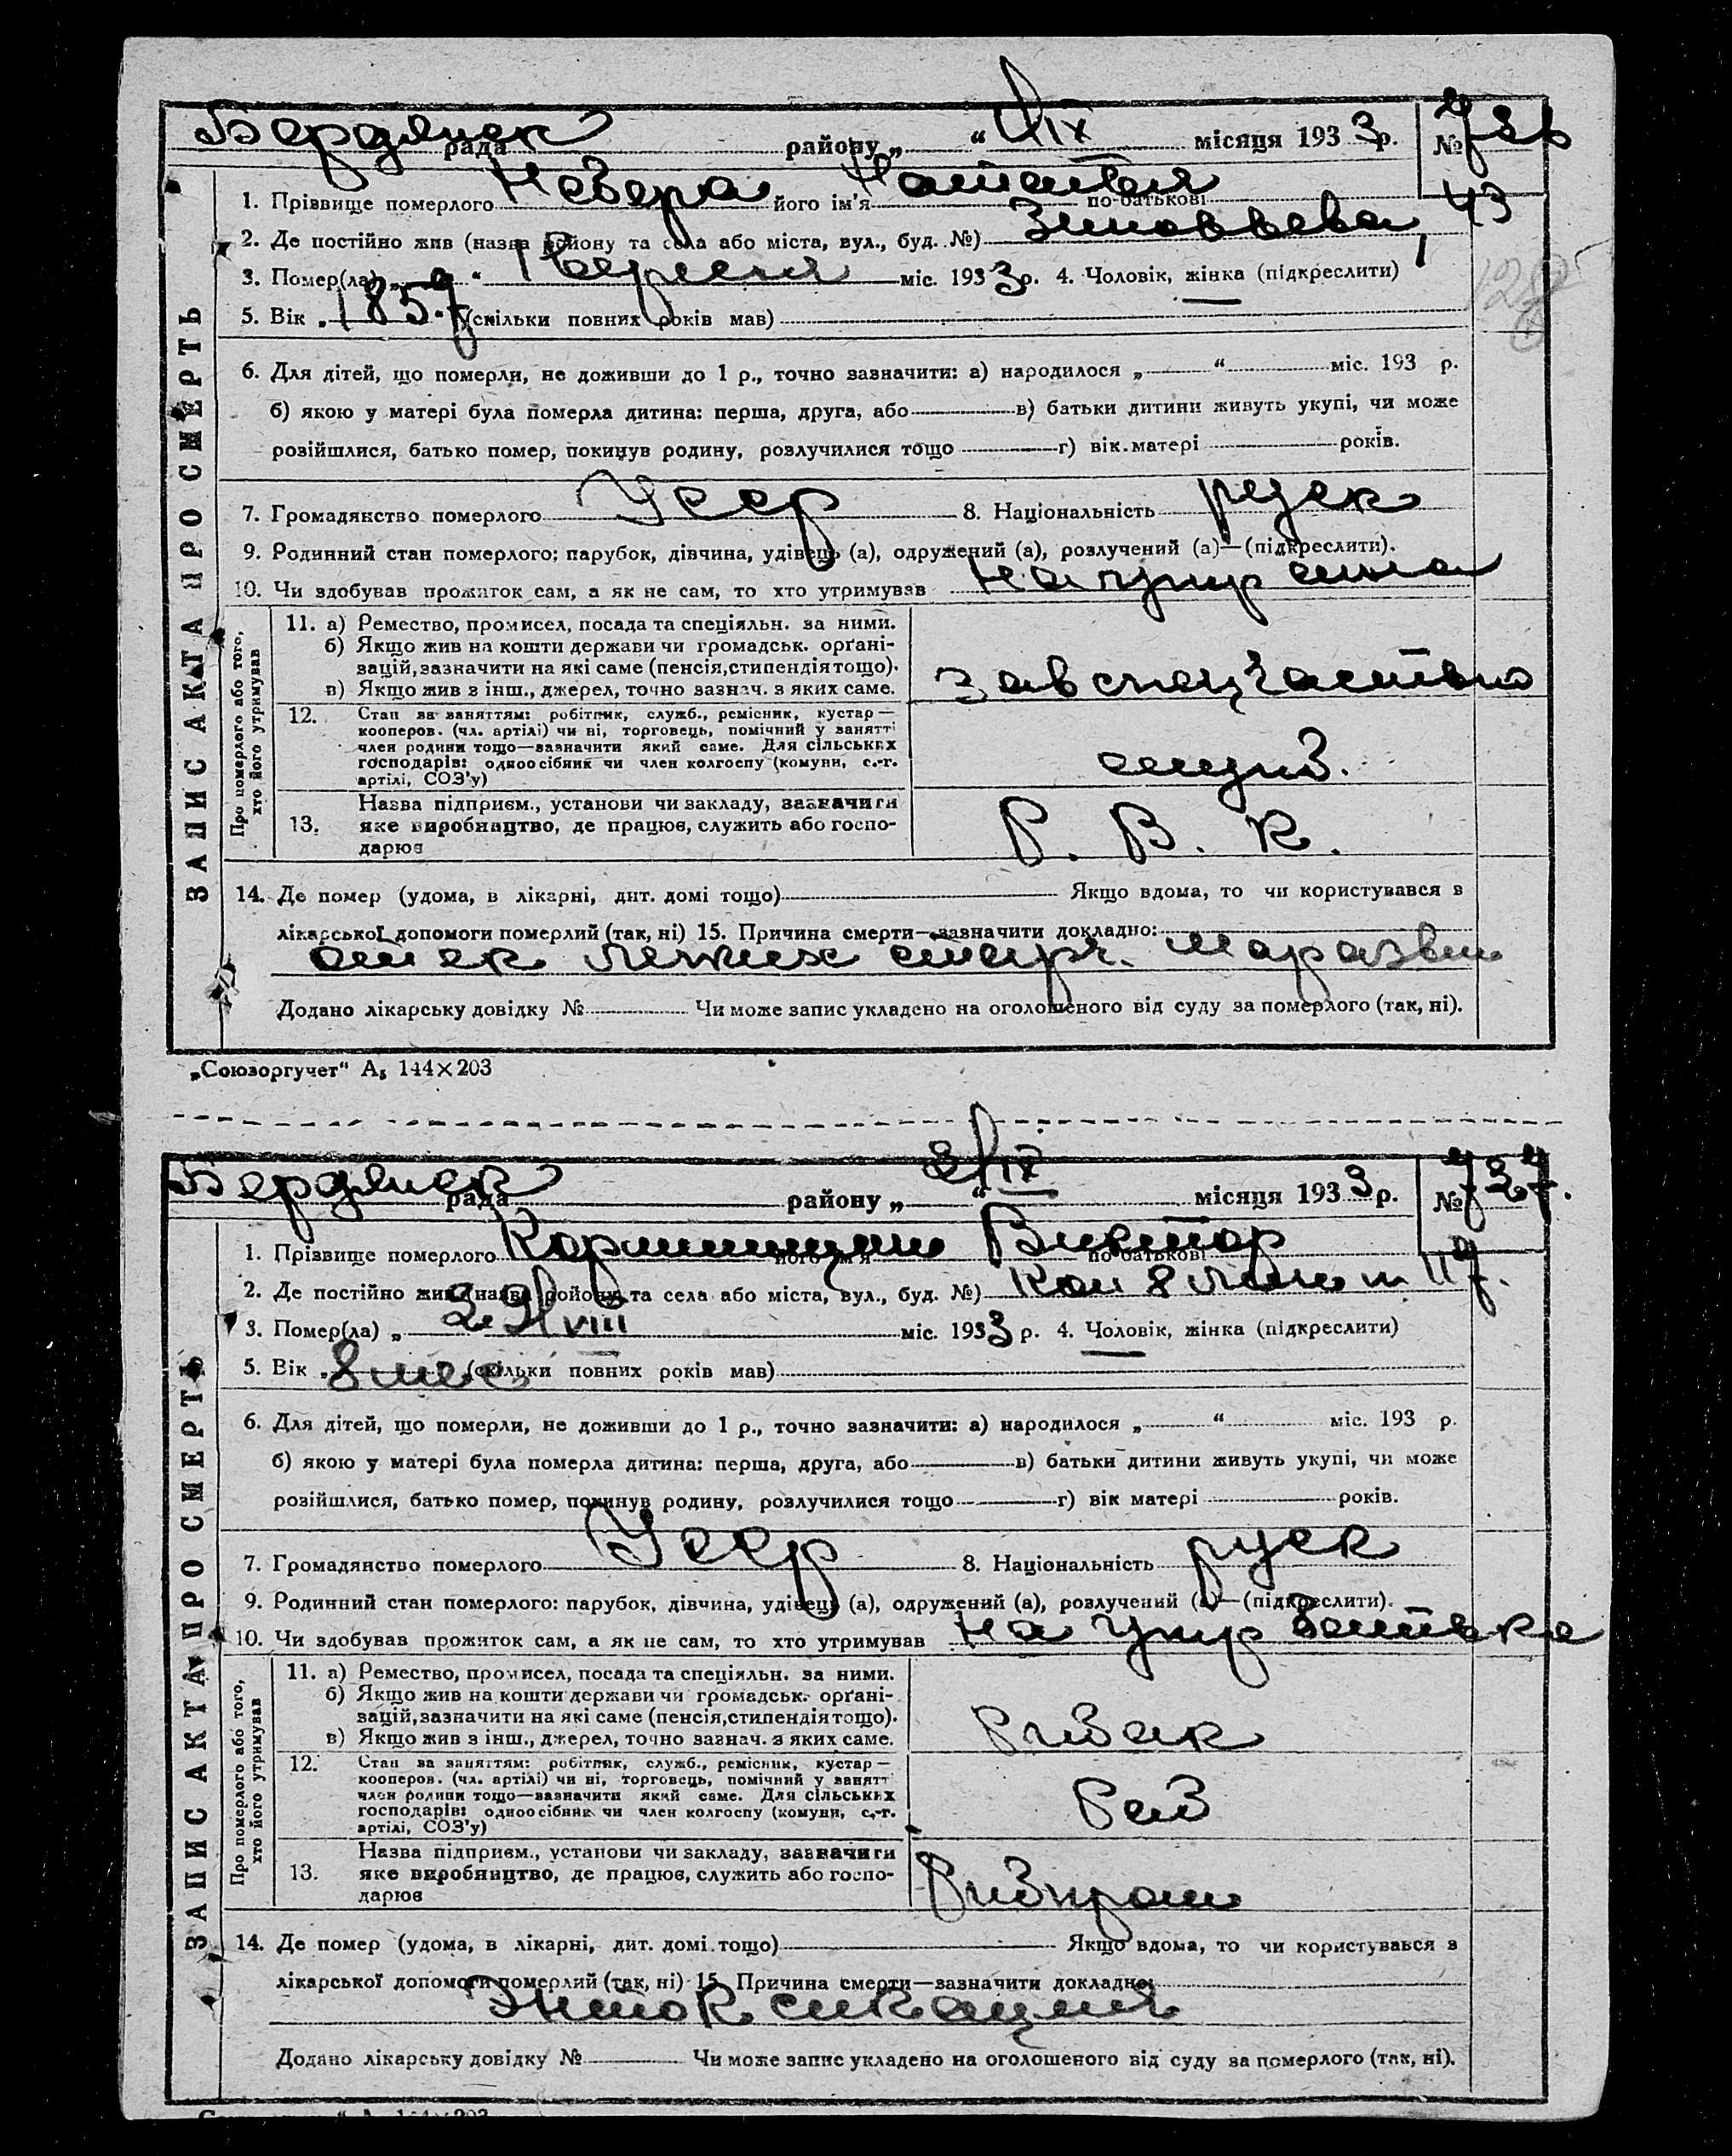 Бердянск рада району „ “ IX місяця 1933 р. № 726
1. Прізвище померлого Невера його ім'я Наталья по-батькові
2. Де постійно жив (назва району та села або міста, вул., буд. №) Зиновьева, 43
3. Помер(ла) „ “ 1 Вересня міс. 1933 р. 4. Чоловік, жінка (підкреслити)
5. Вік „ 1857 (скільки повних років мав)
6. Для дітей, що померли, не доживши до 1 р., точно зазначити: а) народилося „ “ міс. 193 р.
б) якою у матері була померла дитина: перша, друга, або в) батьки дитини живуть укупі, чи може
розійшлися, батько помер, покинув родину, розлучилися тощо г) вік матері років.
7. Громадянство померлого Усср 8. Національність руск
9. Родинний стан померлого; парубок, дівчина, удівець (а), одружений (а), розлучений (а)—(підкреслити).
10. Чи здобував прожиток сам, а як не сам, то хто утримував на утр сина
ЗАПИС АКТА ПРО СМЕРТЬ
Про померлого або того, хто його утримував
11. а) Ремество, промисел, посада та спеціяльн. за ними.
б) Якщо жив на кошти держави чи громадськ. орґані-
зацій, зазначити на які саме (пенсія, стипендія тощо).
в) Якщо жив з інш., джерел, точно зазнач. з яких саме.
зав спецчастью
12. Стан за заняттям: робітник, служб., ремісник, кустар—
кооперов. (чл. артілі) чи ні, торговець, помічний у занятті
член родини тощо—зазначити який саме. Для сільських
господарів: одноосібник чи член колгоспу (комуни, с.-г.
артілі, СОЗ'у)
служ.
13. Назва підприєм., установи чи закладу, зазначити
яке виробництво, де працює, служить або госпо-
дарює
Р. В. К.
14. Де помер (удома, в лікарні, дит. домі тощо) Якщо вдома, то чи користувався в
лікарської допомоги померлий (так, ні) 15. Причина смерти—зазначити докладно:
отек легких старч. маразм
Додано лікарську довідку № Чи може запис укладено на оголошеного від суду за померлого (так, ні).
„Союзоргучет“ А₅ 144×203
Бердянск рада району „ “ 3/IX місяця 1933 р. № 727.
1. Прізвище померлого його ім'я Виктор по-батькові
2. Де постійно жив (назва району та села або міста, вул., буд. №) 117.
3. Помер(ла) „ 29/VIII міс. 1933 р. 4. Чоловік, жінка (підкреслити)
5. Вік „ 8 мес (скільки повних років мав)
6. Для дітей, що померли, не доживши до 1 р., точно зазначити: а) народилося „ “ міс. 193 р.
б) якою у матері була померла дитина: перша, друга, або в) батьки дитини живуть укупі, чи може
розійшлися, батько помер, покинув родину, розлучилися тощо г) вік матері років.
7. Громадянство померлого Усср 8. Національність руск
9. Родинний стан померлого: парубок, дівчина, удівець (а), одружений (а), розлучений (а)—(підкреслити).
10. Чи здобував прожиток сам, а як не сам, то хто утримував на утр батька
ЗАПИС АКТА ПРО СМЕРТЬ
Про померлого або того, хто його утримував
11. а) Ремество, промисел, посада та спеціяльн. за ними.
б) Якщо жив на кошти держави чи громадськ. орґані-
зацій, зазначити на які саме (пенсія, стипендія тощо).
в) Якщо жив з інш., джерел, точно зазнач. з яких саме.
Рибак
12. Стан за заняттям: робітник, служб., ремісник, кустар—
кооперов. (чл. артілі) чи ні, торговець, помічний у занятт
член родини тощо—зазначити який саме. Для сільських
господарів: одноосібник чи член колгоспу (комуни, с.-г.
артілі, СОЗ'у)
Раб
13. Назва підприєм., установи чи закладу, зазначити
яке виробництво, де працює, служить або госпо-
дарює
Рибтрест
14. Де помер (удома, в лікарні, дит. домі тощо) Якщо вдома, то чи користувався в
лікарської допомоги померлий (так, ні) 15. Причина смерти—зазначити докладно:
Энтоксикация
Додано лікарську довідку № Чи може запис укладено на оголошеного від суду за померлого (так, ні).